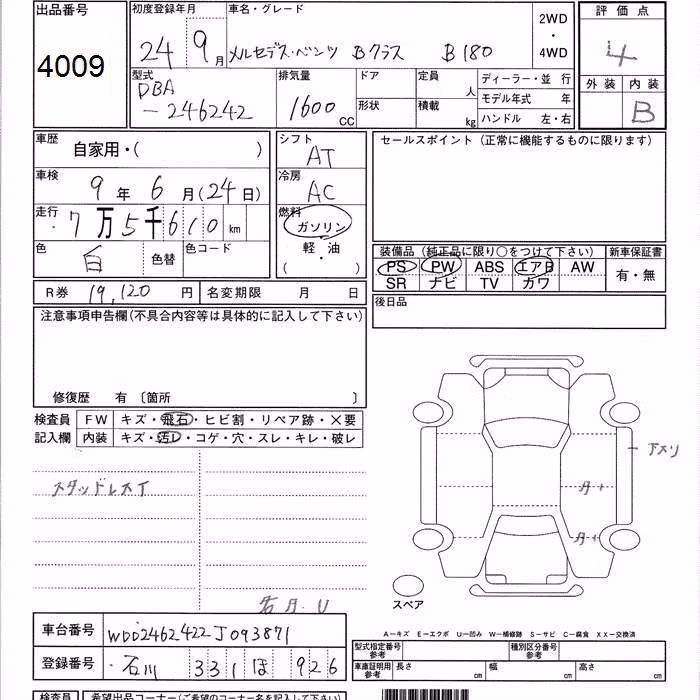 出品番号 初度登録年月 車名・グレード 2WD 評価点
4009 24 9月 メルセデス・ベンツ Bクラス B180 ・ 4
4WD
型式 排気量 ドア 定員 人 ディーラー・並行 外装 内装
DBA
-246242 1600cc 形状 積載 kg モデル年式 年 B
ハンドル 左・右
車歴 自家用・( ) シフト AT セールスポイント (正常に機能するものに限ります)
車検 9年6月(24日) 冷房 AC
走行 7万5千610km 燃料 ガソリン
色 白 色替 色コード 軽・油 装備品 (純正品に限り○をつけて下さい) 新車保証書
( ・ ) PS PW ABS エアB AW 有・無
SR ナビ TV カワ
R券 19,120円 名変期限 月 日 後日品
注意事項申告欄(不具合内容等は具体的に記入して下さい)
修復歴 有 〔箇所 〕
検査員 FW キズ・飛石・ヒビ割・リペア跡・×要
記入欄 内装 キズ・汚レ・コゲ・穴・スレ・キレ・破レ
下スリ
スタッドレス
スペア
車台番号 WDD2462422J093871
A−キズ E−エクボ U−凹み W−補修跡 S−サビ C−腐食 XX−交換済
型式指定番号 参考 種別区分番号 参考
登録番号 石川 331 ほ 926
車庫証明用 参考 長さ cm 幅 cm 高さ cm
検査員 希望出品コーナー(ご希望のコーナー名を記入下さい)